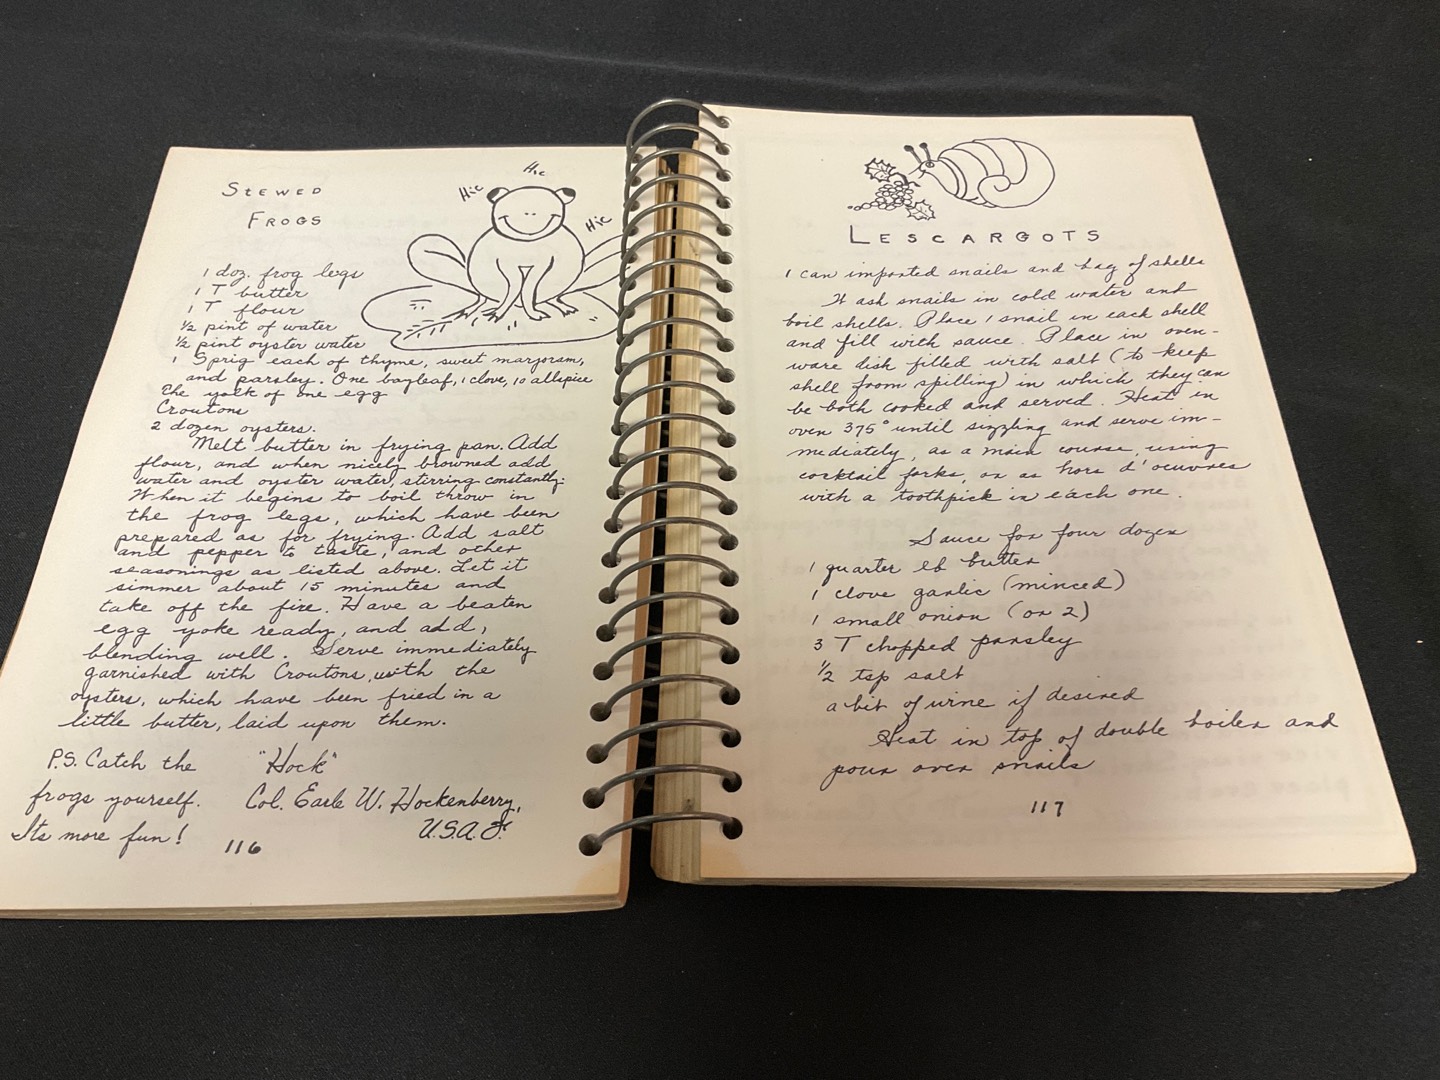 STEWED
FROGS
Hic
Hic
Hic
1 doz. frog legs
1 T butter
1 T flour
1/2 pint of water
1/2 pint oyster water
1 Sprig each of thyme, sweet marjoram,
and parsley. One bayleaf, 1 clove, 10 allspice
The yolk of one egg
Croutons
2 dozen oysters.
Melt butter in frying pan. Add
flour, and when nicely browned add
water and oyster water, stirring constantly.
When it begins to boil throw in
the frog legs, which have been
prepared as for frying. Add salt
and pepper to taste, and other
seasonings as listed above. Let it
simmer about 15 minutes and
take off the fire. Have a beaten
egg yoke ready, and add,
blending well. Serve immediately
garnished with Croutons, with the
oysters, which have been fried in a
little butter, laid upon them.
P.S. Catch the
frogs yourself.
Its more fun!
"Hock"
Col. Earle W. Hockenberry,
U.S.A.F.
116
LESCARGOTS
1 can imported snails and bag of shells
Wash snails in cold water and
boil shells. Place 1 snail in each shell
and fill with sauce. Place in oven-
ware dish filled with salt (to keep
shell from spilling) in which they can
be both cooked and served. Heat in
oven 375° until sizzling and serve im-
mediately, as a main course, using
cocktail forks, or as hors d'oeuvres
with a toothpick in each one.
Sauce for four dozen
1 quarter lb butter
1 clove garlic (minced)
1 small onion (or 2)
3 T chopped parsley
1/2 tsp salt
a bit of wine if desired
Heat in top of double boiler and
pour over snails
117